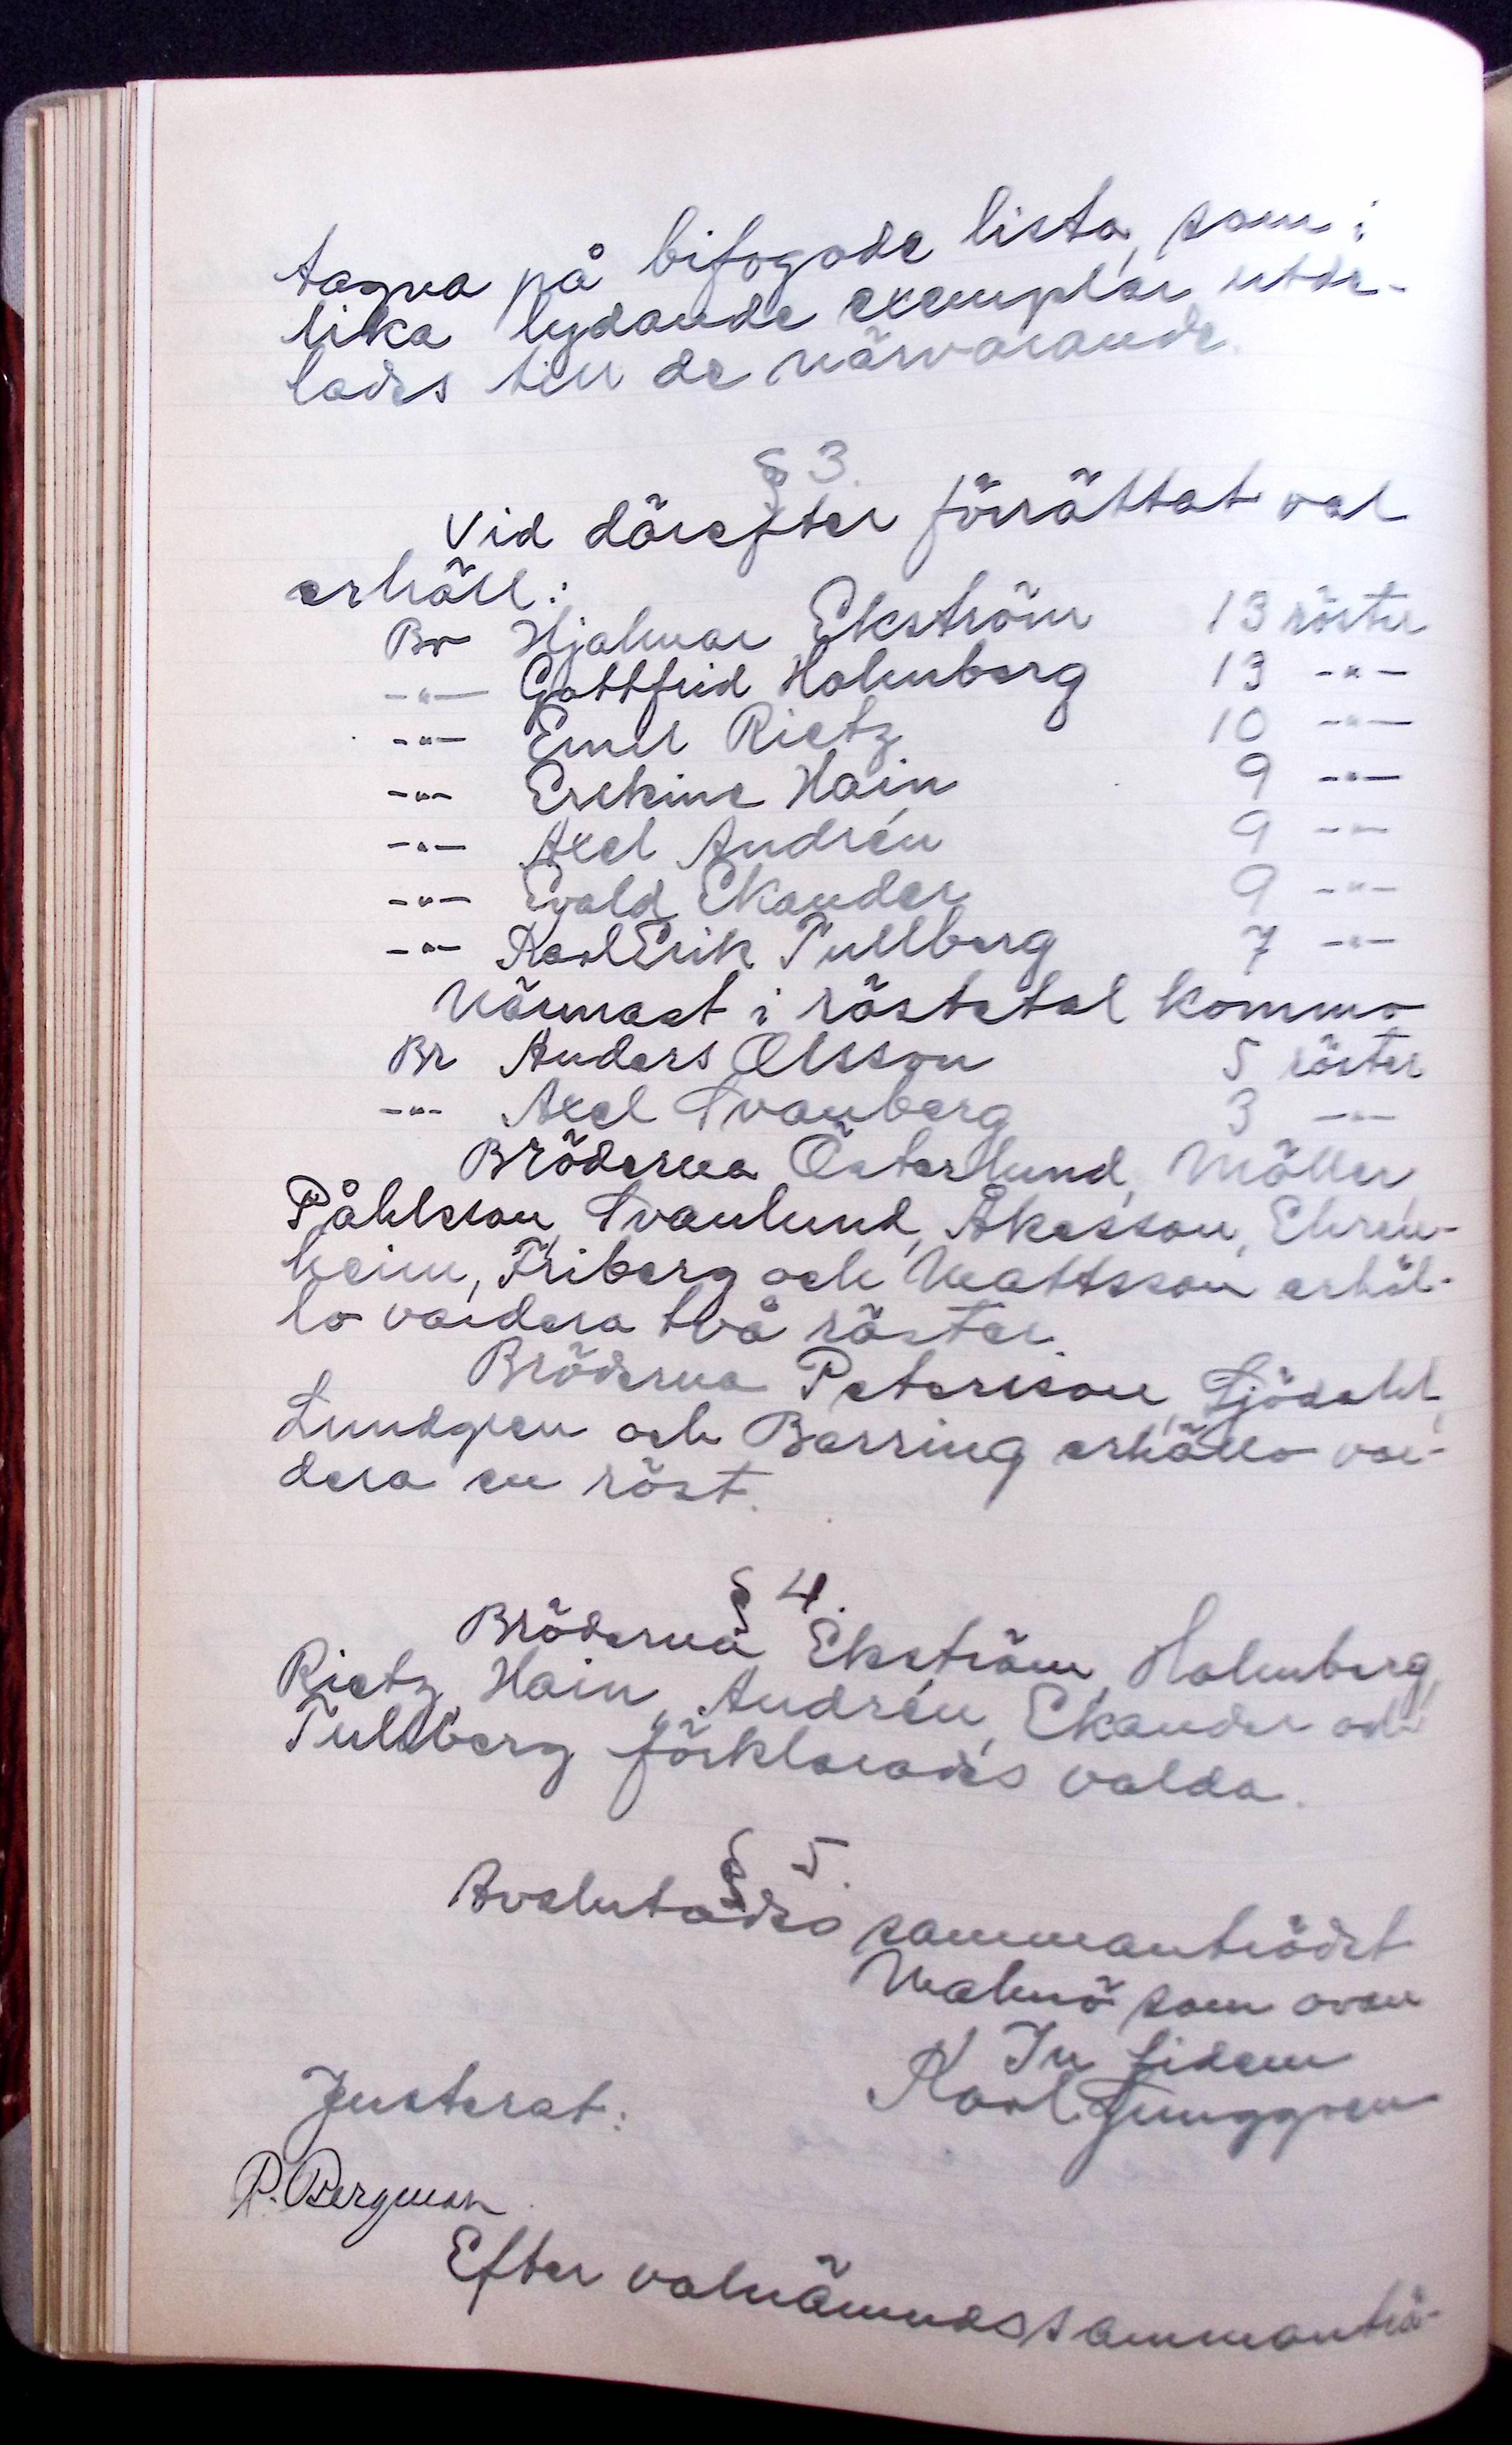 tagna på bifogade lista, som i
lika lydande exemplar utde-
lades till de närvarande.
§ 3.
Vid därefter förrättat val
erhöll:
Br Hjalmar Ekström 13 röster
-"- Gottfrid Holmberg 13 -"-
-"- Emil Rietz 10 -"-
-"- Erskine Hain 9 -"-
-"- Axel Andrén 9 -"-
-"- Evald Ekander 9 -"-
-"- Karl Erik Tullberg 7 -"-
Närmast i röstetal kommo
Br Anders Olsson 5 röster
-"- Axel Svanberg 3 -"-
Bröderna Österlund, Möller,
Påhlsson, Svanlund, Åkesson, Ehren-
heim, Friberg och Mattsson erhöl-
lo vardera två röster.
Bröderna Petersson, Sjödahl,
Lundgren och Barring erhöllo var-
dera en röst.
§ 4.
Bröderna Ekström, Holmberg,
Rietz, Hain, Andrén, Ekander och
Tullberg förklarades valda.
§ 5.
Avslutades sammanträdet
Malmö som ovan
In fidem
Karl Ljunggren
Justerat:
P. Bergman
Efter valnämndssammanträ-